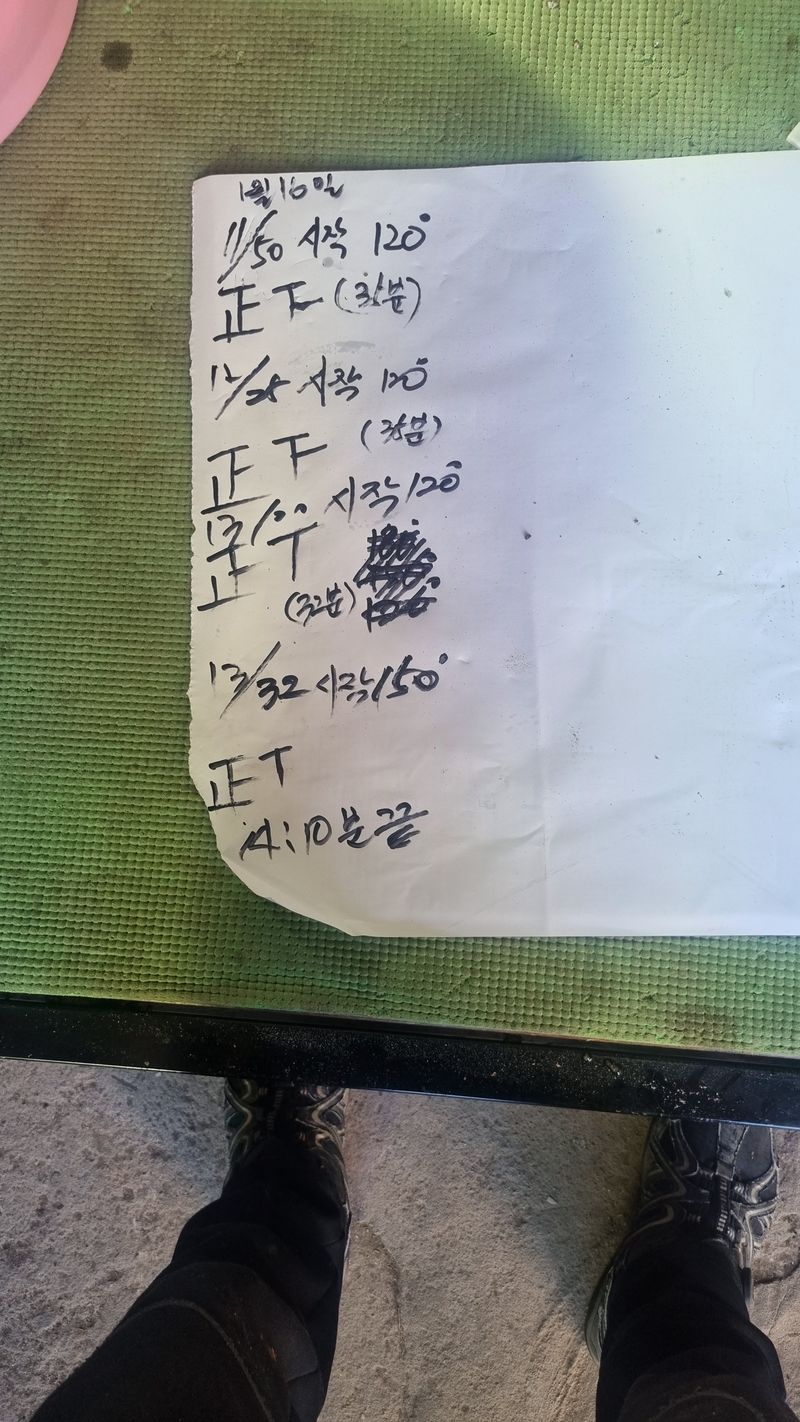 1월 16일
11/50 시작 120°
正下 (35분)
12/25 시작 120°
正下 (35분)
13/00 시작 120°
正T
(32분)
13/32 시작 150°
正T
14:10분 끝